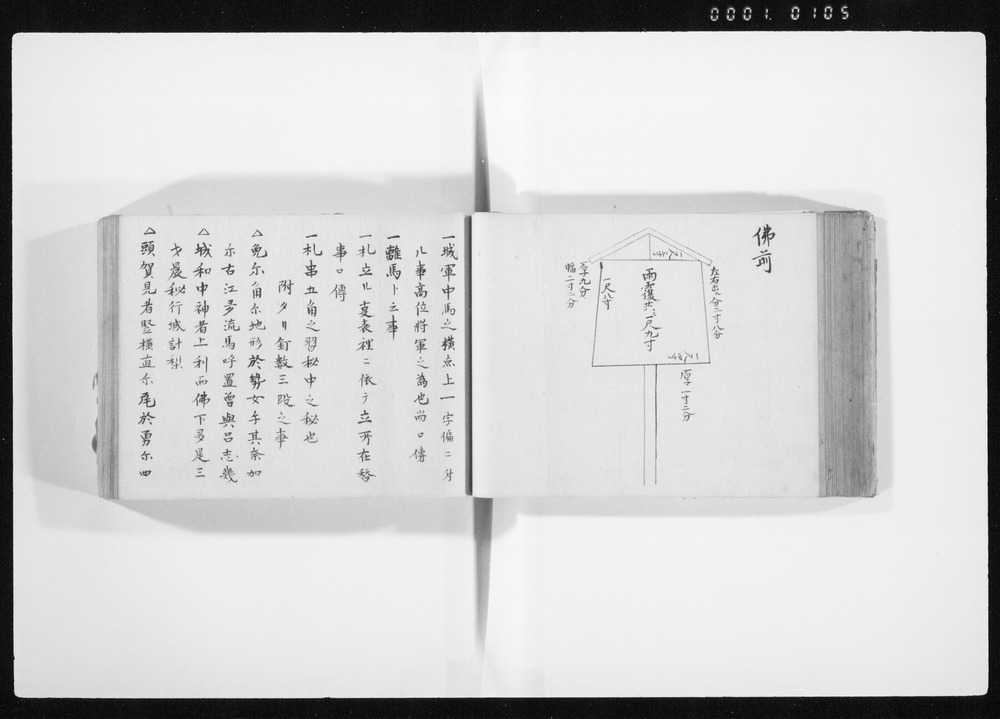 0001 0105
佛前
左右出八分二寸八分
雨霞共一尺九寸
一尺八寸
厚サ九分
幅一寸二分
厚一寸二分
一城軍中馬之横点上一字偏ニ付
ル事高位将軍之為也尚口傳
一離馬ト云事
一札立ル支表裡ニ依テ立所在
事口傳
一札串五角之習秘中之秘也
附タリ釘数三段之事
△免尓角尓地形於勢女手其奈加
尓古江多流馬呼置曽與呂志幾
△城和中神者上利而佛下多是三
才晨秘行城計
△頭賀見者竪横直尓尾於勇尓四